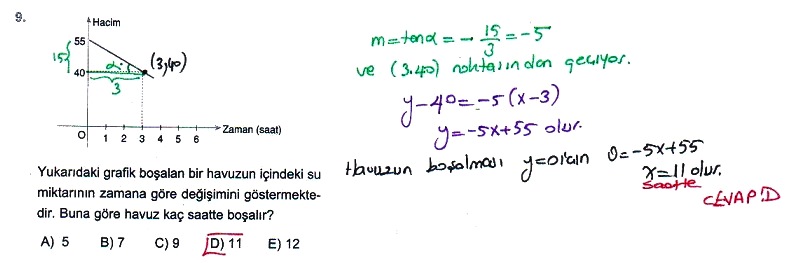 9.
Hacim
55
15
40
α
(3,40)
3
O 1 2 3 4 5 6 Zaman (saat)
Yukarıdaki grafik boşalan bir havuzun içindeki su
miktarının zamana göre değişimini göstermekte-
dir. Buna göre havuz kaç saatte boşalır?
A) 5 B) 7 C) 9 D) 11 E) 12
m=tanα = - 15/3 = -5
ve (3.40) noktasından geçiyor.
y-40=-5(x-3)
y=-5x+55 olur.
Havuzun boşalması y=0 için 0=-5x+55
x=11 olur.
saatte
CEVAP:D